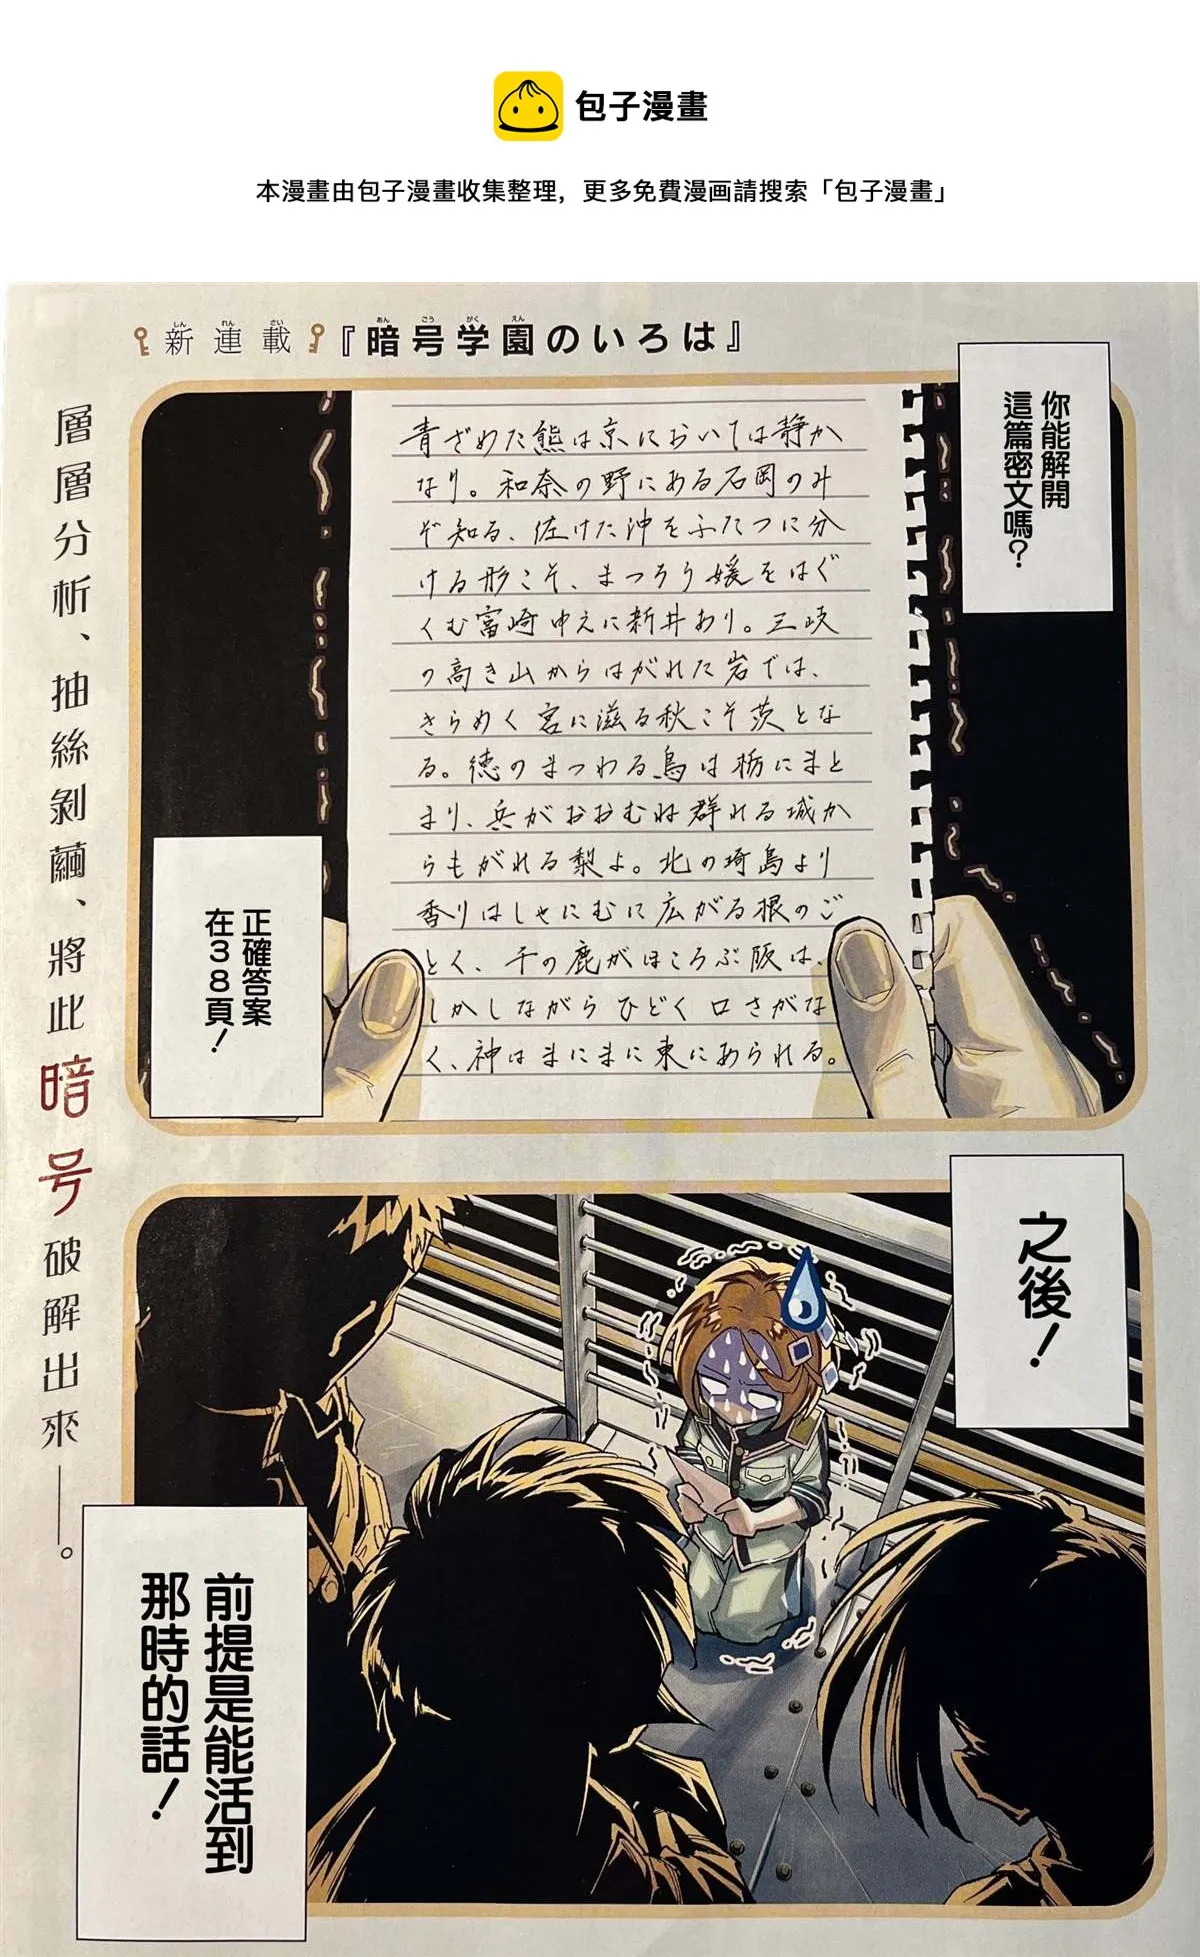 包子漫畫
本漫畫由包子漫畫收集整理，更多免費漫画請搜索「包子漫畫」
新連載『暗号学園のいろは』
しん れん さい あん ごう がく えん
你能解開
這篇密文嗎？
青ざめた熊は京においては静か
なり。和奈の野にある石岡のみ
ぞ知る、佐けた沖をふたつに分
ける形こそ、まつろう媛をはぐ
くむ富崎ゆえに新井あり。三岐
の高き山からはがれた岩では、
きらめく宮に滋る秋こそ茨とな
る。徳のまつわる鳥は栃にまと
まり、兵がおおむね群れる城か
らもがれる梨よ。北の埼島より
香りはしゃにむに広がる根のご
とく、千の鹿がほころぶ阪は、
しかしながらひどく口さがな
く、神はまにまに東にあられる。
正確答案
在38頁！
層層分析、抽絲剝繭、將此暗号破解出來——。
之後！
前提是能活到
那時的話！